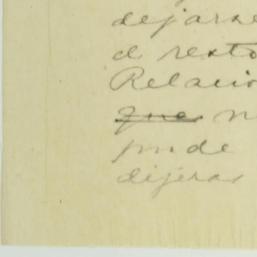 dejarse
el resto
Relacio
que n
pude
dijeras